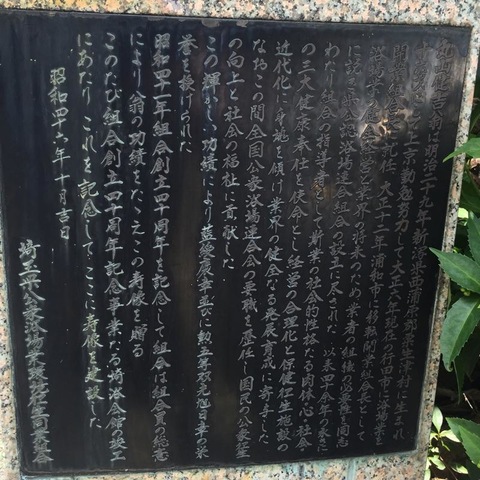 翁は明治二十九年新潟県西蒲原郡粟生津村に生まれ
して大正六年現在の行田市に浴場業を
大正十二年浦和市に移転開業組合長として
浴場業の健全経営と業界の将来のため業者の組織の必要性を同志
に説き県公認浴場連合組合の設立に尽された 以来四十余年の永きに
わたり組合の指導者として斯業の社会的性格たる肉体 心 社会
の三大健康奉仕を使命とし経営の合理化と保健衛生施設の
近代化に身魂を傾け業界の健全なる発展育成に寄与した
なおこの間全国公衆浴場連合会の要職を歴任し国民の公衆衛生
の向上と社会の福祉に貢献した
この輝かしい功績により藍綬褒章並びに勲五等双光旭日章の栄
誉を授けられた
昭和四十一年組合創立四十周年を記念して組合は組合員の総意
により翁の功績をたゝえこの寿像を贈る
このたび組合創立四十周年記念事業たる埼浴会館の竣工
にあたりこれを記念してここに寿像を建設した
昭和四十六年十月吉日
埼玉県公衆浴場業環境衛生同業組合